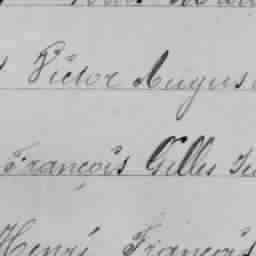 Victor Augus
François Gilles
Henri François